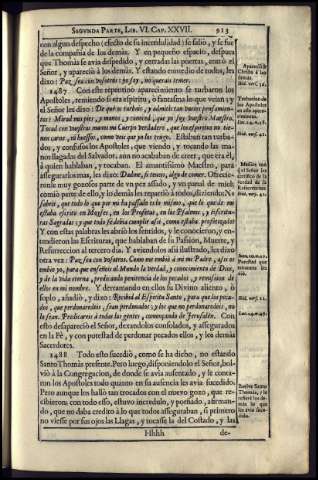 SEGUNDA PARTE, LIB. VI. CAP. XXVII. 913
con algun despecho (efecto de su incredulidad) se salio, y se fue
de la compañia de los demàs. Y en pequeño espacio, despues
que Thomàs se avia despedido, y cerradas las puertas, entrò el
Señor, y apareciò à los demàs. Y estando enmedio de todos, les
dixo: Paz sea con vosotros: yo soy, no querais temer.
1487 Con este repentino aparecimiento se turbaron los
Apostoles, temiendo si era espiritu, ò fantasma lo que veìan y
el Señor les dixo: De què os turbais, y admitis tan varios pensamien-
tos? Mirad mis pies, y manos, y conoced, que yo soy vuestro Maestro.
Tocad con vuestras manos mi Cuerpo verdadero, que los espiritus no tie-
nen carne, ni huessos, como veis que yo los tengo. Estaban tan turba-
dos, y confusos los Apostoles, que viendo, y tocando las ma-
nos llagadas del Salvador, aun no acababan de creer, que era èl,
à quien hablaban, y tocaban. El amantissimo Maestro, para
assegurarlos mas, les dixo: Dadme, si teneis, algo de comer. Ofrecie-
ronle muy gozosos parte de un pez assado, y un panal de miel:
comiò parte de ello, y lo demàs les repartiò à todos, diciendo: No
sabeis, que todo lo que por mi ha passado es lo mismo, que de mi
estaba escrito en Moysès, en los Profetas, en los Psalmos, y Escritu-
ras Sagradas; y que todo se debia cumplir assi, como estaba profetizado?
Y con estas palabras les abriò los sentidos, y le conocieron, y en-
tendieron las Escrituras, que hablaban de su Passion, Muerte, y
Resurreccion al tercero dia. Y aviendolos assi ilustrado, les dixo
otra vez: Paz sea con vosotros. Como me embiò à mi mi Padre, assi os
embio yo, para que enseñeis al Mundo la verdad, y conocimiento de Dios,
y de la vida eterna, predicando penitencia de los pecados, y remission de
ellos en mi nombre. Y derramando en ellos su Divino aliento, ò
soplo, añadiò, y dixo: Recibid al Espiritu Santo, para que los peca-
dos, que perdonaredes, sean perdonados; y los que no perdonaredes, no
lo sean. Predicareis à todas las gentes, comenzando de Jerusalèn. Con
esto desapareciò el Señor, dexandolos consolados, y assegurados
en la Fè, y con potestad de perdonar pecados ellos, y los demàs
Sacerdotes.
1488 Todo esto sucediò, como se ha dicho, no estando
Santo Thomàs presente. Pero luego, disponiendolo el Señor, bol-
viò à la Congregacion, de donde se avia ausentado, y le conta-
ron los Apostoles todo quanto en su ausencia les avia sucedido.
Pero aunque los hallò tan trocados con el nuevo gozo, que re-
cibieron; con todo esso, estuvo incredulo, y porfiado, afirman-
do, que no daba credito à lo que todos asseguraban, si primero
no viesse por sus ojos las Llagas, y tocasse la del Costado, y las
Hhhh de-
Aparecese
Christo à los
demàs.
Turbacion de
los Apostoles
en este apare-
cimiento.
Ibid. vers. 41.